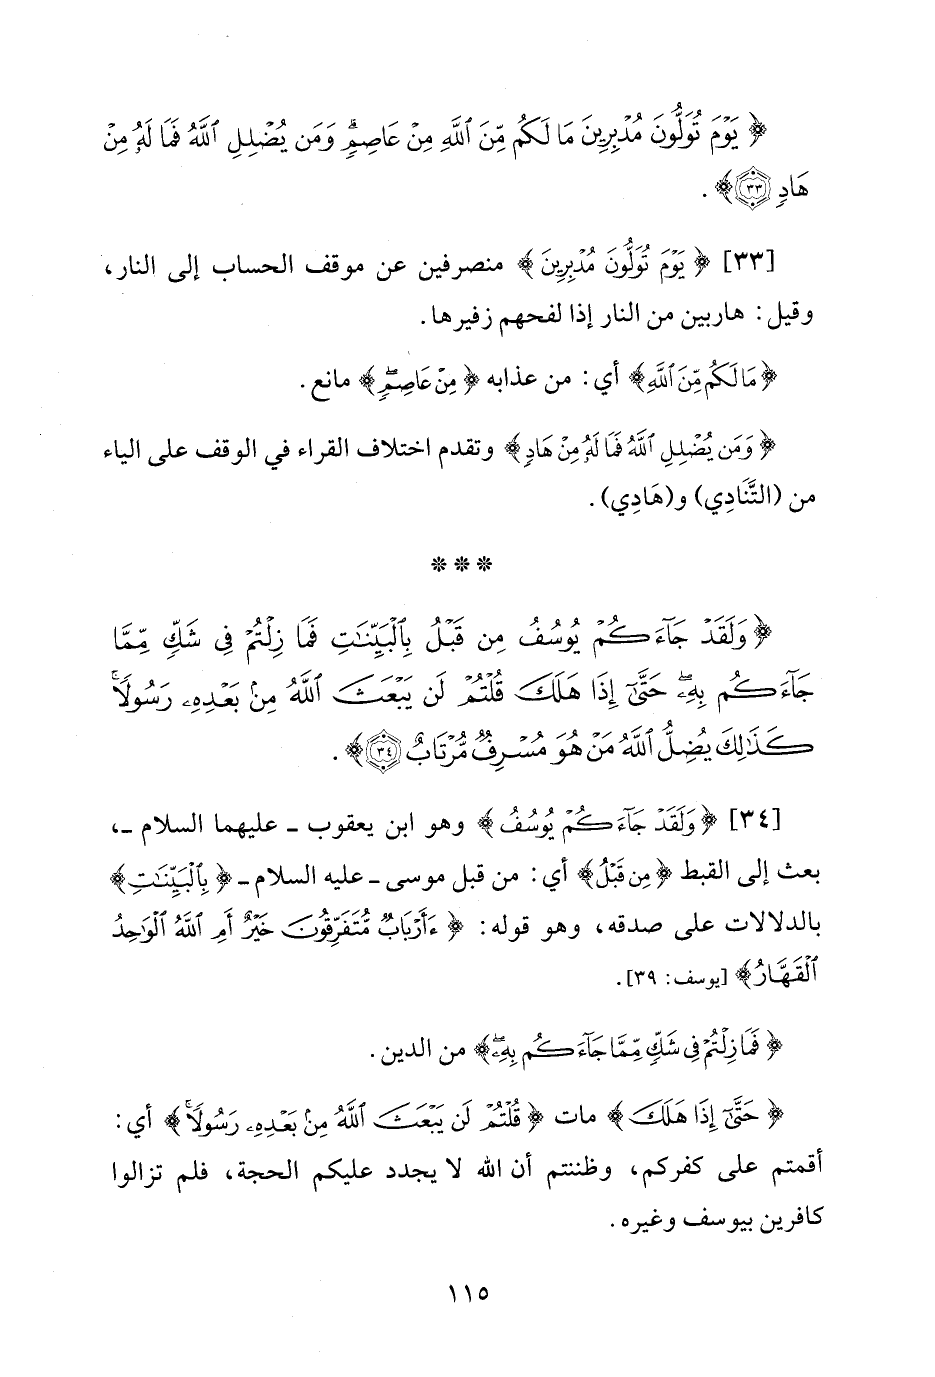 ﴿يَوْمَ تُوَلُّونَ مُدْبِرِينَ مَا لَكُم مِّنَ ٱللَّهِ مِنْ عَاصِمٍۗ وَمَن يُضْلِلِ ٱللَّهُ فَمَا لَهُۥ مِنْ
هَادٍ ٣٣﴾.
[٣٣] ﴿يَوْمَ تُوَلُّونَ مُدْبِرِينَ﴾ منصرفين عن موقف الحساب إلى النار،
وقيل: هاربين من النار إذا لفحهم زفيرها.
﴿مَا لَكُم مِّنَ ٱللَّهِ﴾ أي: من عذابه ﴿مِنْ عَاصِمٍۗ﴾ مانع.
﴿وَمَن يُضْلِلِ ٱللَّهُ فَمَا لَهُۥ مِنْ هَادٍ﴾ وتقدم اختلاف القراء في الوقف على الياء
من (التَّنَادِي) و(هَادِي).
* * *
﴿وَلَقَدْ جَآءَكُمْ يُوسُفُ مِن قَبْلُ بِٱلْبَيِّنَٰتِ فَمَا زِلْتُمْ فِى شَكٍّ مِّمَّا
جَآءَكُم بِهِۦۖ حَتَّىٰٓ إِذَا هَلَكَ قُلْتُمْ لَن يَبْعَثَ ٱللَّهُ مِنۢ بَعْدِهِۦ رَسُولًاۚ
كَذَٰلِكَ يُضِلُّ ٱللَّهُ مَنْ هُوَ مُسْرِفٌ مُّرْتَابٌ ٣٤﴾.
[٣٤] ﴿وَلَقَدْ جَآءَكُمْ يُوسُفُ﴾ وهو ابن يعقوب ـ عليهما السلام ـ،
بعث إلى القبط ﴿مِن قَبْلُ﴾ أي: من قبل موسى ـ عليه السلام ـ ﴿بِٱلْبَيِّنَٰتِ﴾
بالدلالات على صدقه، وهو قوله: ﴿ءَأَرْبَابٌ مُّتَفَرِّقُونَ خَيْرٌ أَمِ ٱللَّهُ ٱلْوَٰحِدُ
ٱلْقَهَّارُ﴾ [يوسف: ٣٩].
﴿فَمَا زِلْتُمْ فِى شَكٍّ مِّمَّا جَآءَكُم بِهِۦۖ﴾ من الدين.
﴿حَتَّىٰٓ إِذَا هَلَكَ﴾ مات ﴿قُلْتُمْ لَن يَبْعَثَ ٱللَّهُ مِنۢ بَعْدِهِۦ رَسُولًاۚ﴾ أي:
أقمتم على كفركم، وظننتم أن الله لا يجدد عليكم الحجة، فلم تزالوا
كافرين بيوسف وغيره.
١١٥